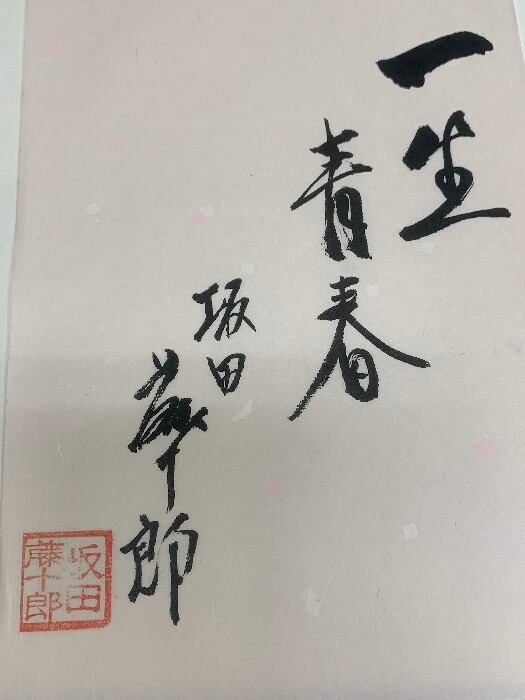 一生
青春
坂田
藤十郎
坂田
藤十郎